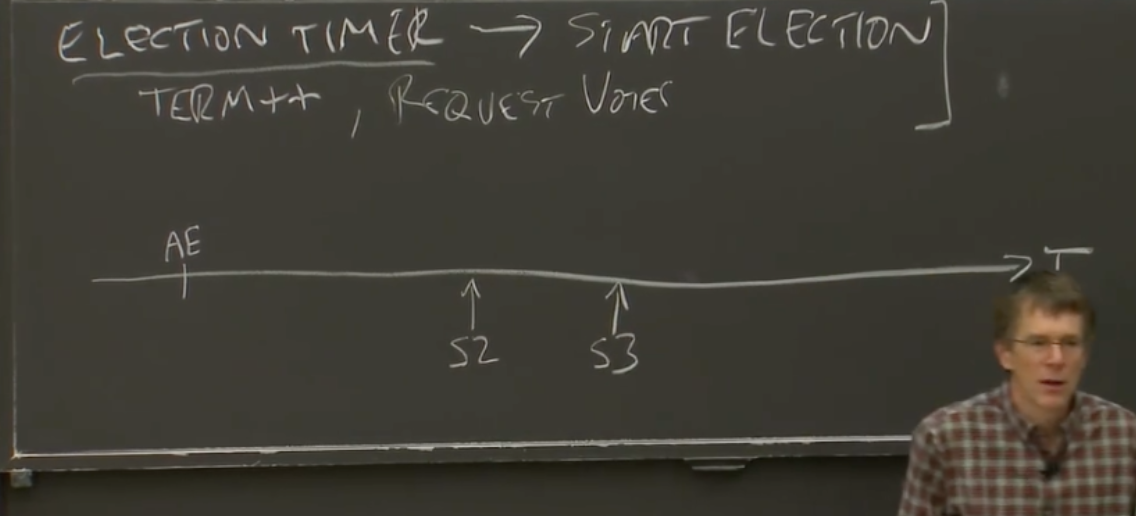 ELECTION TIMER → START ELECTION]
TERM++, REQUEST VOTES
AE
T
S2 S3